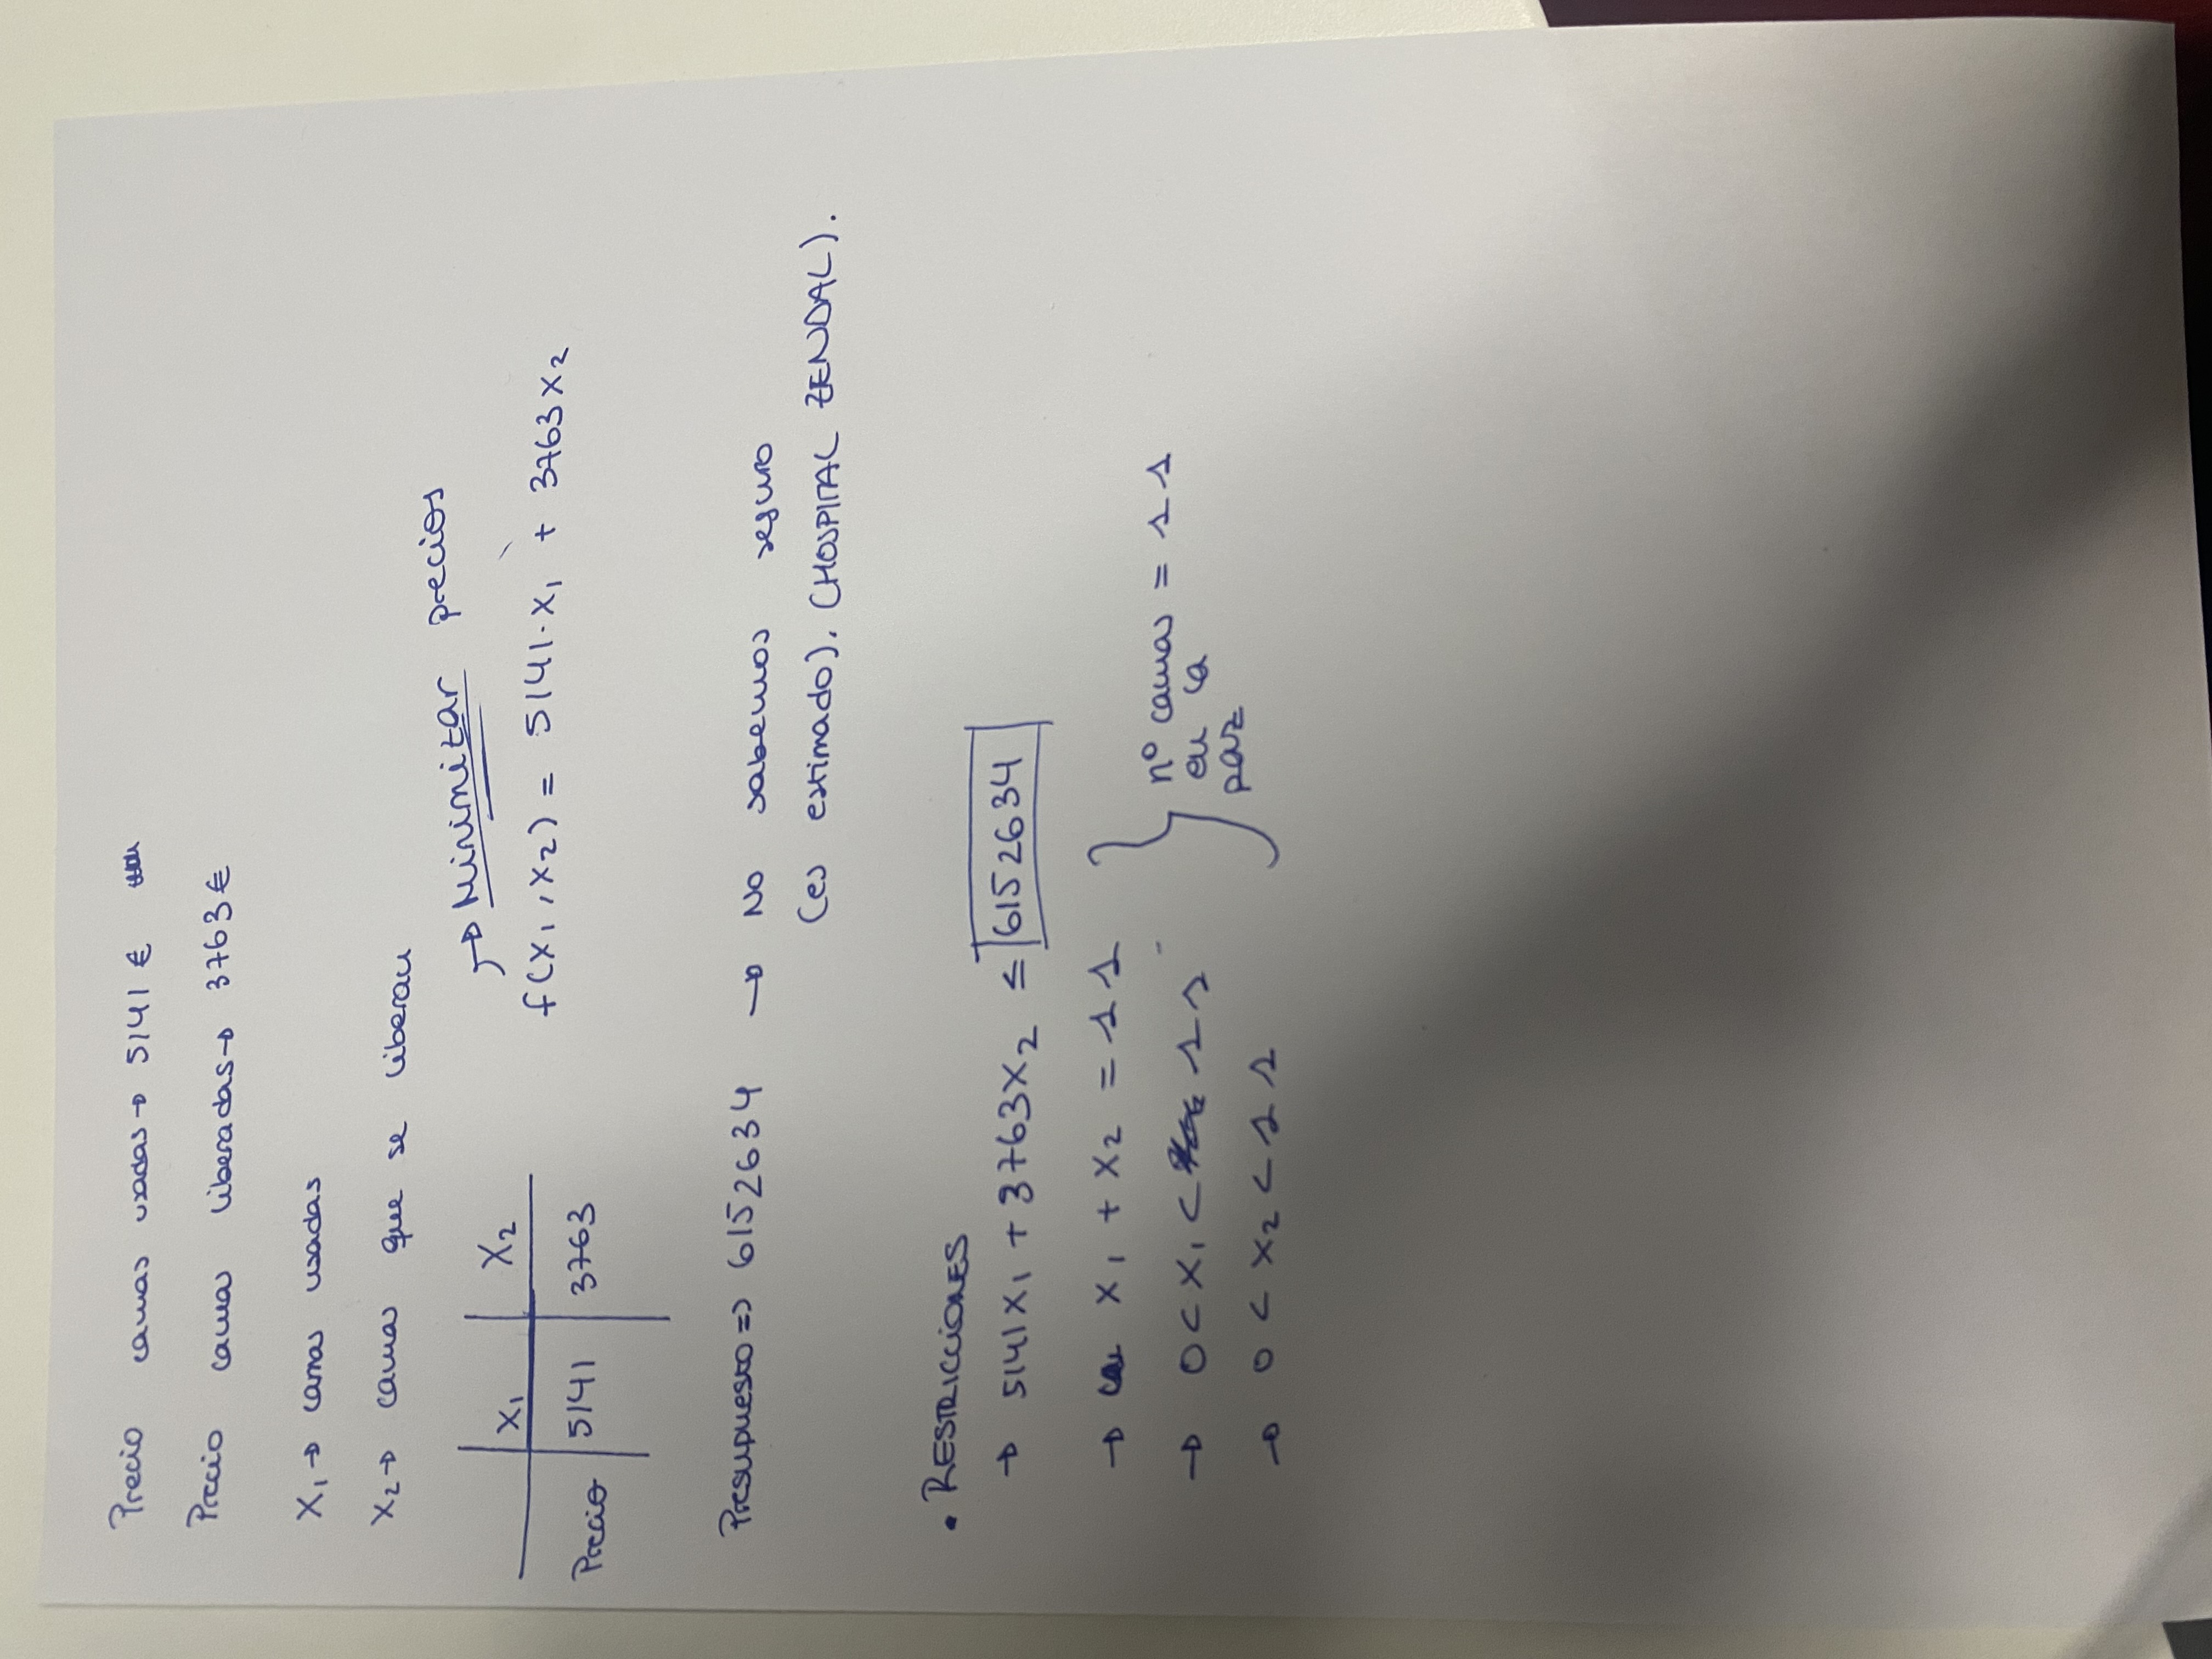 Precio camas usadas → 5141 €
Precio camas liberadas → 3763 €
X₁ → camas usadas
X₂ → camas que se liberan
→ Minimizar precios
X₁ X₂
f(X₁, X₂) = 5141·X₁ + 3763X₂
Precio 5141 3763
Presupuesto => 6152634 → No sabemos seguro
(es estimado). (HOSPITAL ZENDAL).
• RESTRICCIONES
→ 5141X₁ + 3763X₂ ≤ 6152634
→ X₁ + X₂ = 11
→ 0 < X₁ < 11
→ 0 < X₂ < 11
nº camas = 11
en la
paz